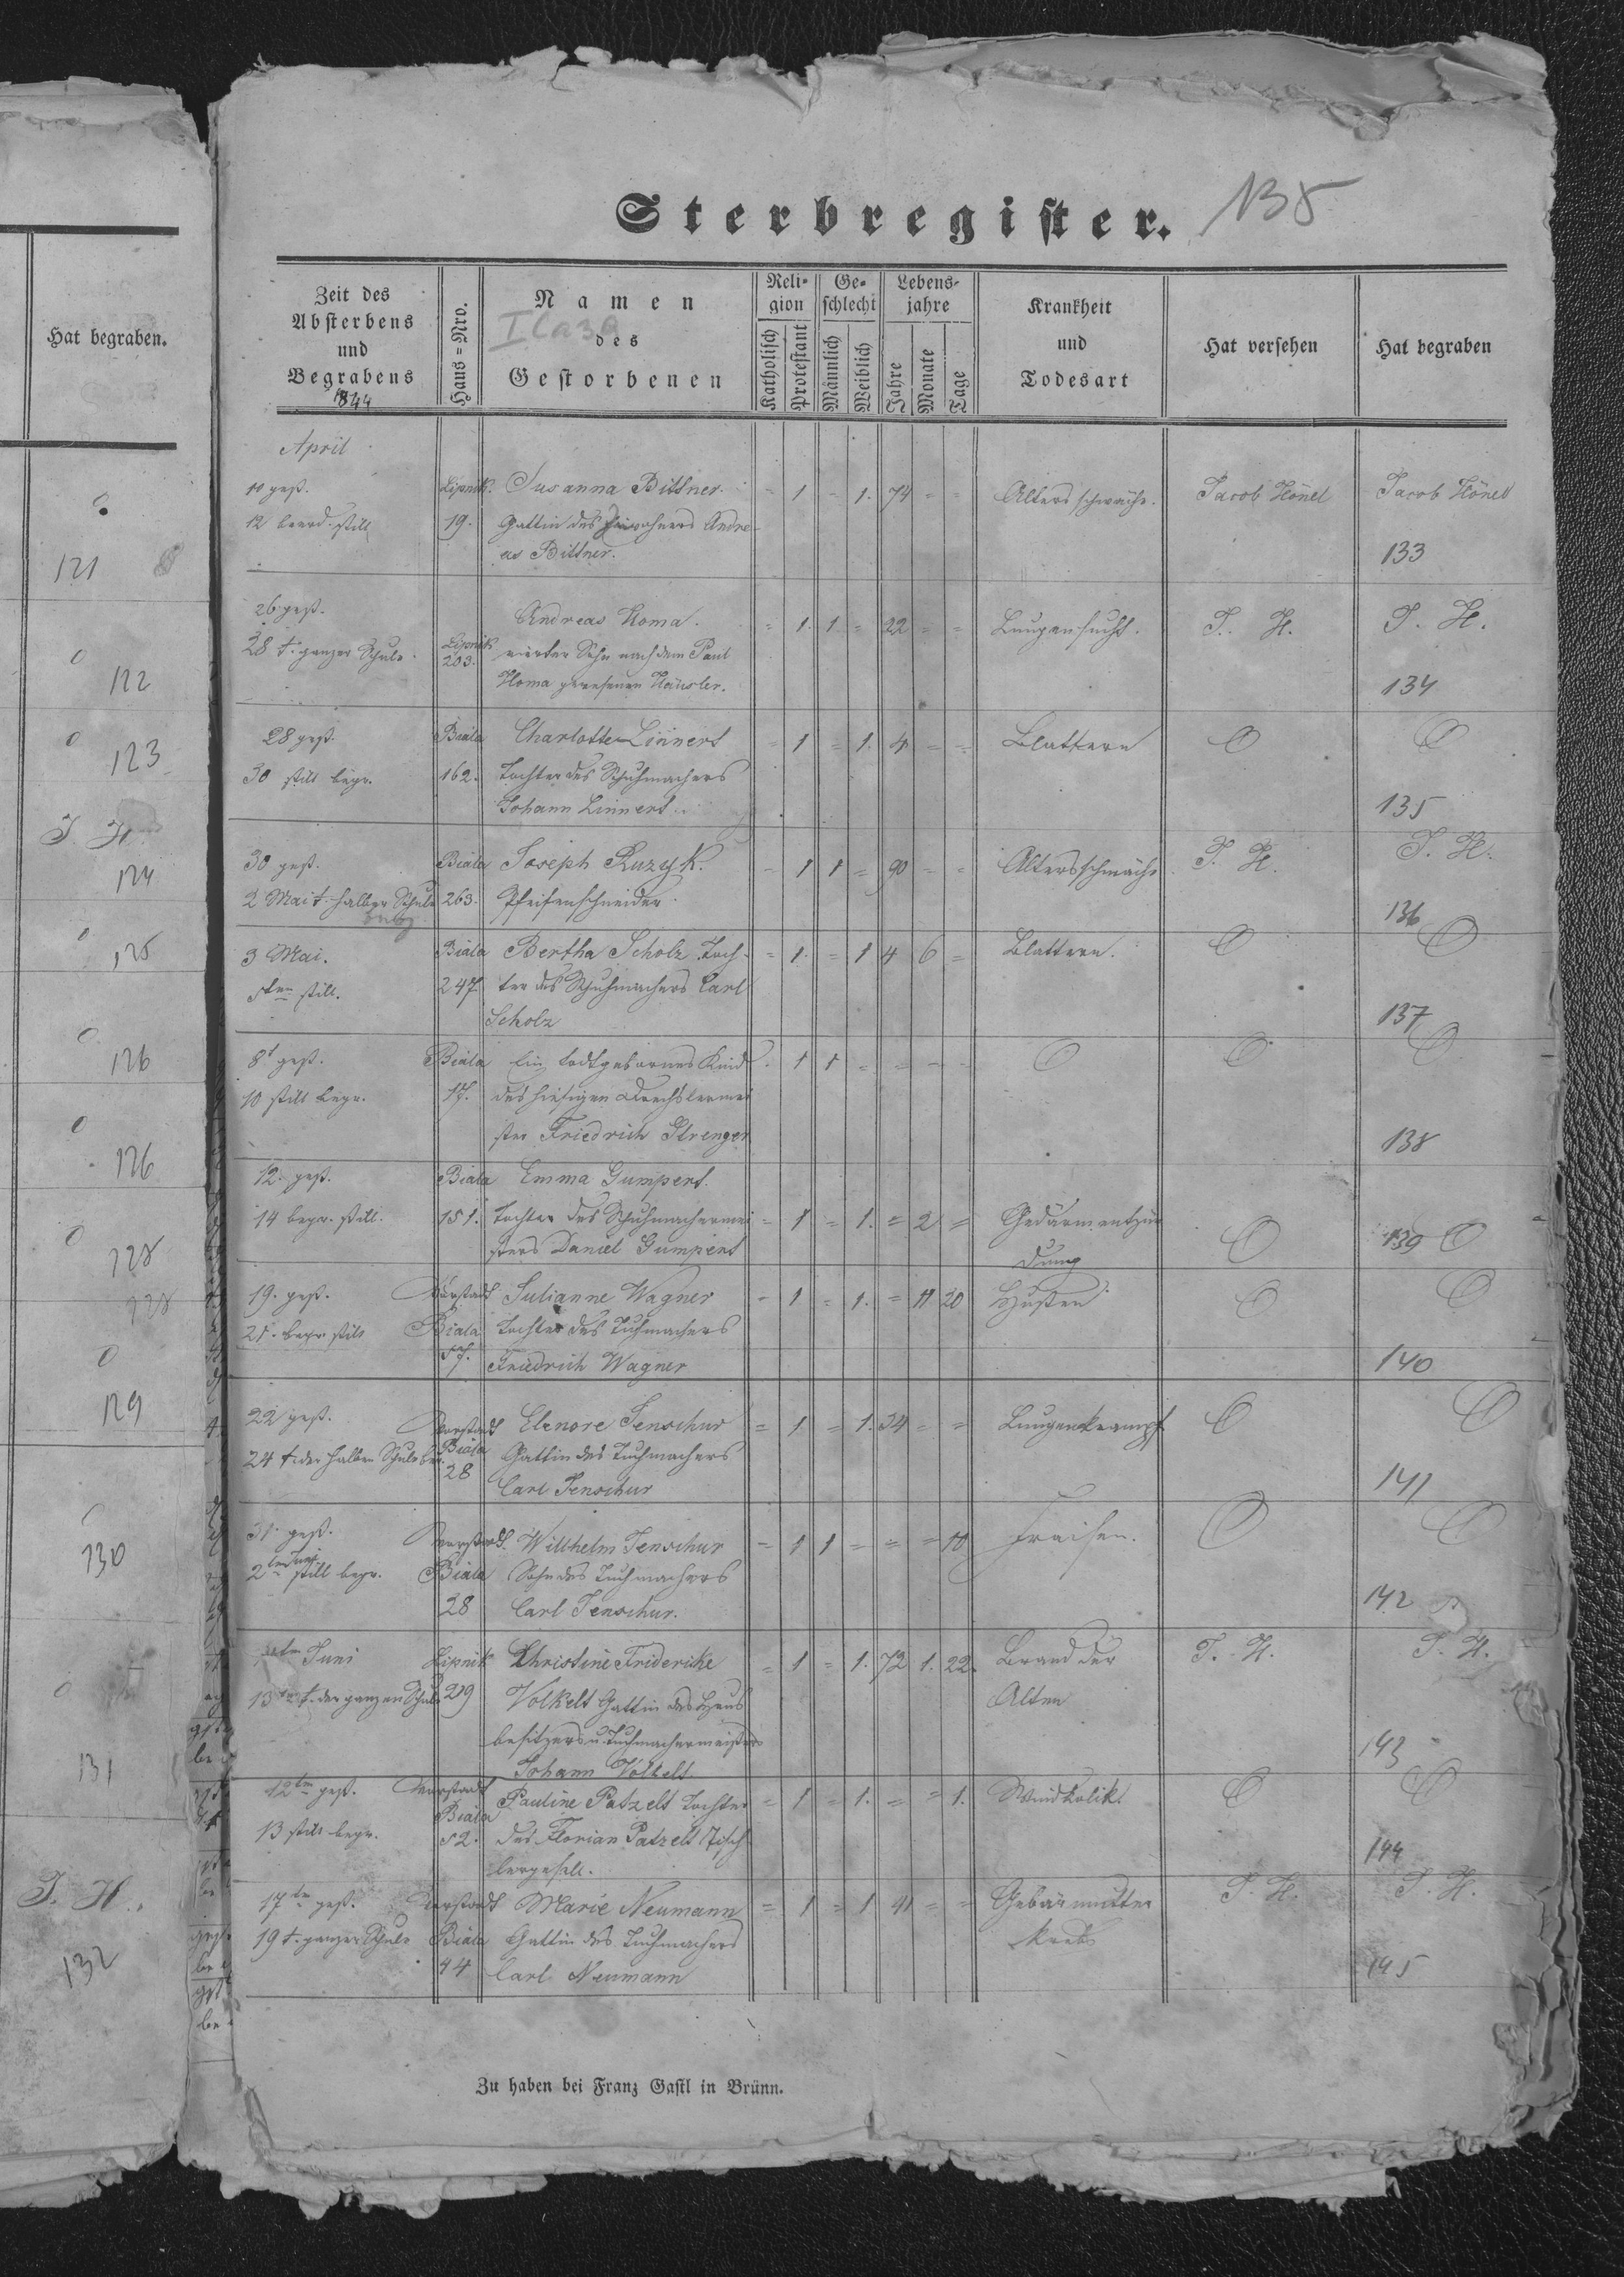 Hat begraben.
121
122
123
J. H.
124
125
126
126
128
129
130
131
J. H.
132
Sterbregister.
138
Zeit des
Absterbens
und
Begrabens
1844
Haus=Nro.
Namen
des
Gestorbenen
Reli-
gion
Katholisch
Protestant
Ge-
schlecht
Männlich
Weiblich
Lebens-
jahre
Jahre
Monate
Tage
Krankheit
und
Todesart
Hat versehen
Hat begraben
April
10 gest. Lipnik. Susanna Bittner. = 1 = 1. 74 = = Altersschwäche. Jacob Hönel Jacob Hönel
12 beerd. still 19. Gattin des Inwohners Andre-
as Bittner. 133
26 gest. Andreas Homa. = 1. 1 = 22 = = Lungensucht. J. H. J. H.
28 t. ganzer Schule. Lipnik 203. vierter Sohn nach dem Paul
Homa gewesenen Häusler. 134
28 gest. Biala Charlotte Linnert = 1 = 1. 4 = = Blattern O O
30 still begr. 162. Tochter des Schuhmachers
Johann Linnert. 135
30 gest. Biala Joseph Ruzyk. = 1 1 = 90 = = Altersschwäche J. H. J. H.
2 Mai t. halber Schule 263. Pfeifenschneider. 136
3 Mai. Biala Bertha Scholz Toch- = 1. = 1 4 6 = Blattern. O O
5ten still. 247. ter des Schuhmachers Carl
Scholz 137
8t gest. Biala Ein todtgebornes Kind 1 1 = = = = O O O
10 still begr. 17. des hiesigen Drechslermei
ster Friedrich Strenger 138
12. gest. Biala Emma Gumpert.
14 begr. still. 151. Tochter des Schuhmachermei = 1 = 1. = 2 = Gedärmentzün O 139 O
sters Daniel Gumpert dung
19. gest. Vorstadt Julianne Wagner = 1 = 1. = 11 20 Husten O O
21. begr. still Biala Tochter des Tuchmachers
57. Friedrich Wagner 140
22 gest. Vorstadt Elenore Jenschur = 1 = 1. 34 = = Lungenkrampf O O
24 t. der halben Schule Biala Gattin des Tuchmachers
28 Carl Jenschur 141
31. gest. Vorstadt. Willhelm Jenschur = 1 1 = = = 10 Fraisen. O O
2ten Juni still begr. Biala Sohn des Tuchmachers
28 Carl Jenschur. 142
Juni Lipnik Christine Friderike = 1 = 1. 72 1. 22. Brand der J. H. J. H.
13ten t. der ganzen Schule 219 Volkelt Gattin des Haus Alten
besitzers u. Tuchmachermeisters
Johann Volkelt. 143
12ten gest. Vorstadt Pauline Patzelt Tochter = 1 = 1. = = 1. Windkolik. O O
Biala
13 still begr. 52. des Florian Patzelt Tisch
lergesell. 144
17ten gest. Vorstadt Marie Neumann = 1 = 1 41 = = Gebärmutter J. H. J. H.
19 t. ganzer Schule Biala Gattin des Tuchmachers krebs
44 Carl Neumann 145
Zu haben bei Franz Gastl in Brünn.